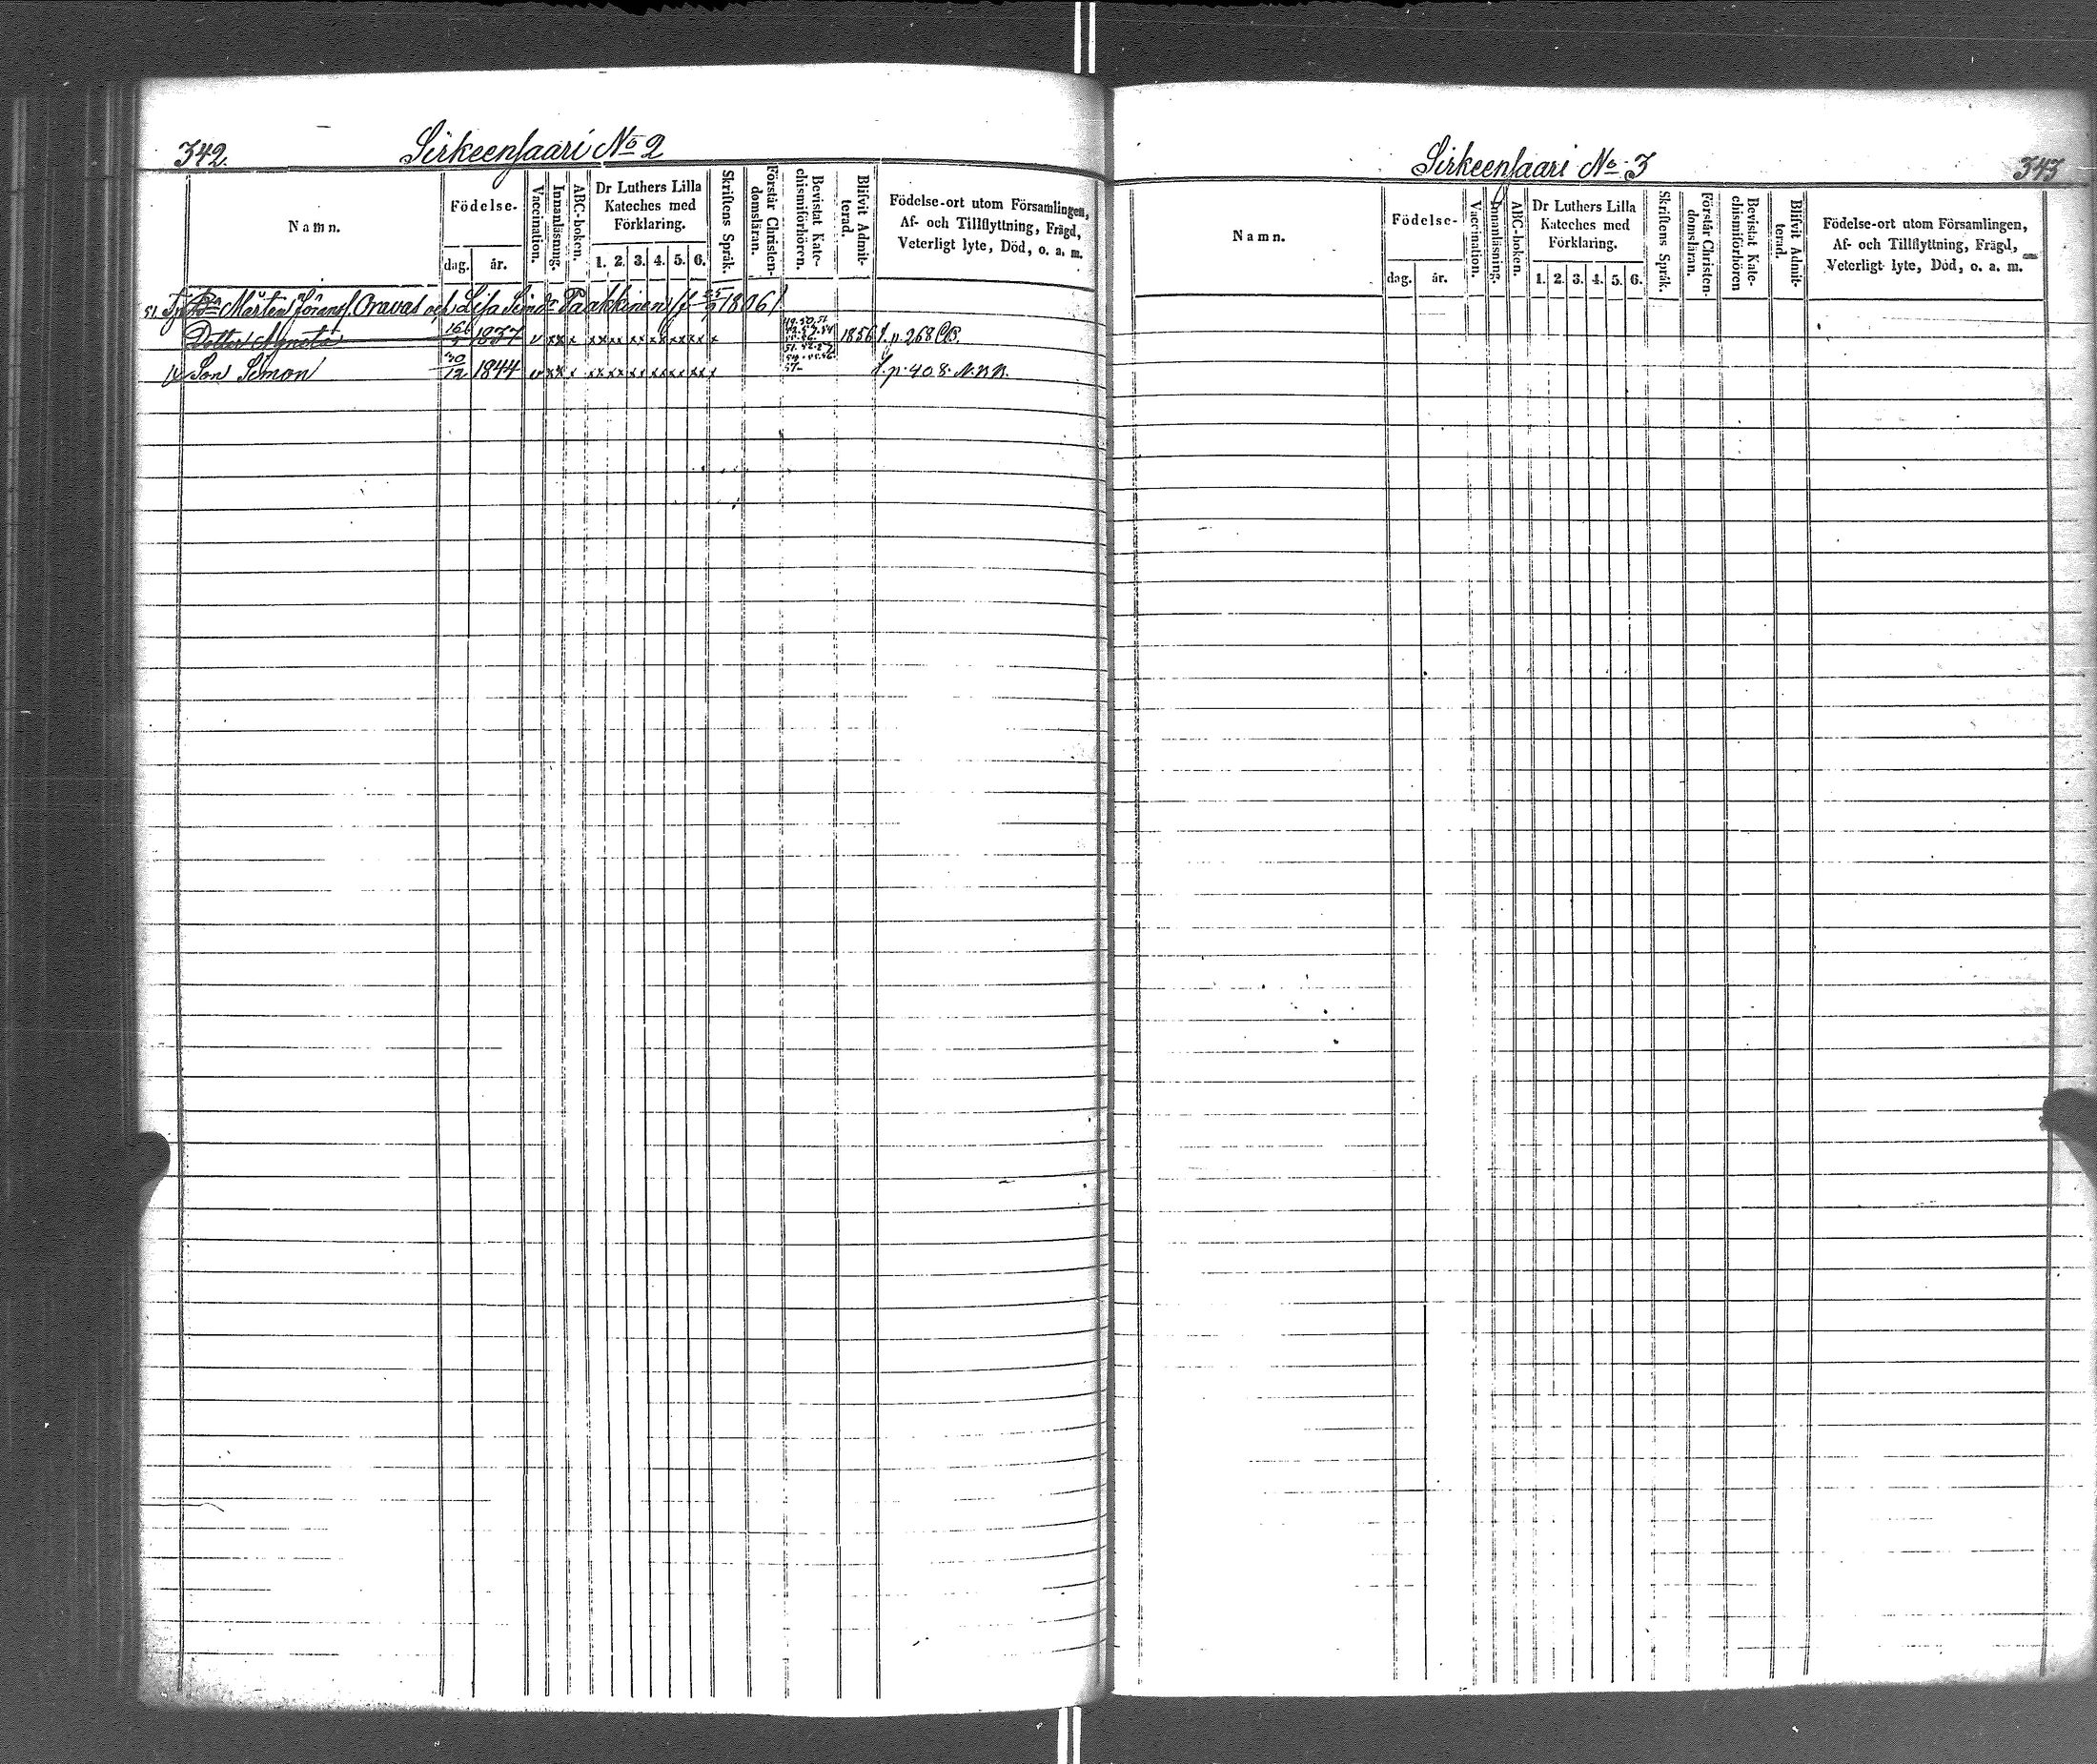 342.
Sirkeensaari No 2
Namn.
Födelse-
dag.
år.
Vaccination.
Innanläsning.
ABC-boken.
Dr Luthers Lilla
Kateches med
Förklaring.
1. 2. 3. 4. 5. 6.
Skriftens Språk.
Förstår Christen-
domsläran.
Bevistat Kate-
chismiförhören.
Blifvit Admit-
terad.
Födelse-ort utom Församlingen,
Af- och Tillflyttning, Frägd,
Veterligt lyte, Död, o. a. m.
51 Mårten Göranss. Oravas och Lisa Simdr Paakkinens (f 1806)
Dotter Agneta 1837 v xx x xx xx xx xx xx xx x 1856 f. p 268 CB.
Son Simon 30/12 1844 v xx x xx xx xx xx xx xx x f. p. 408. N.B.B.
Sirkeensaari No 3
343
Namn.
Födelse-
dag.
år.
Vaccination.
Innanläsning.
ABC-boken.
Dr Luthers Lilla
Kateches med
Förklaring.
1. 2. 3. 4. 5. 6.
Skriftens Språk.
Förstår Christen-
domsläran.
Bevistat Kate-
chismiförhören
Blifvit Admit-
terad.
Födelse-ort utom Församlingen,
Af- och Tillflyttning, Frägd,
Veterligt lyte, Död, o. a. m.